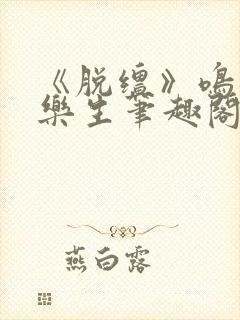 《脱缰》鸣
樂生筆趣閣
燕白露